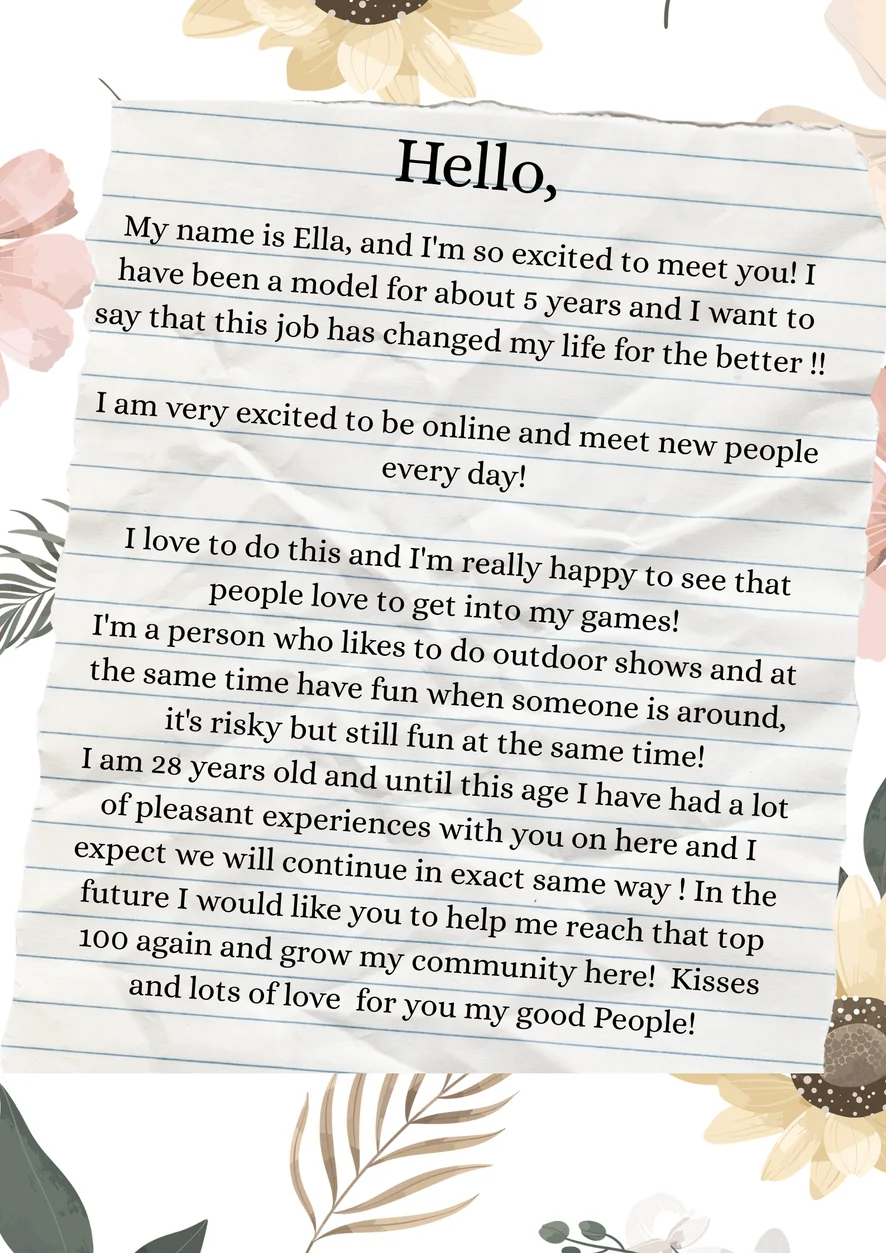 Hello,
My name is Ella, and I'm so excited to meet you! I
have been a model for about 5 years and I want to
say that this job has changed my life for the better !!
I am very excited to be online and meet new people
every day!
I love to do this and I'm really happy to see that
people love to get into my games!
I'm a person who likes to do outdoor shows and at
the same time have fun when someone is around,
it's risky but still fun at the same time!
I am 28 years old and until this age I have had a lot
of pleasant experiences with you on here and I
expect we will continue in exact same way ! In the
future I would like you to help me reach that top
100 again and grow my community here!  Kisses
and lots of love  for you my good People!